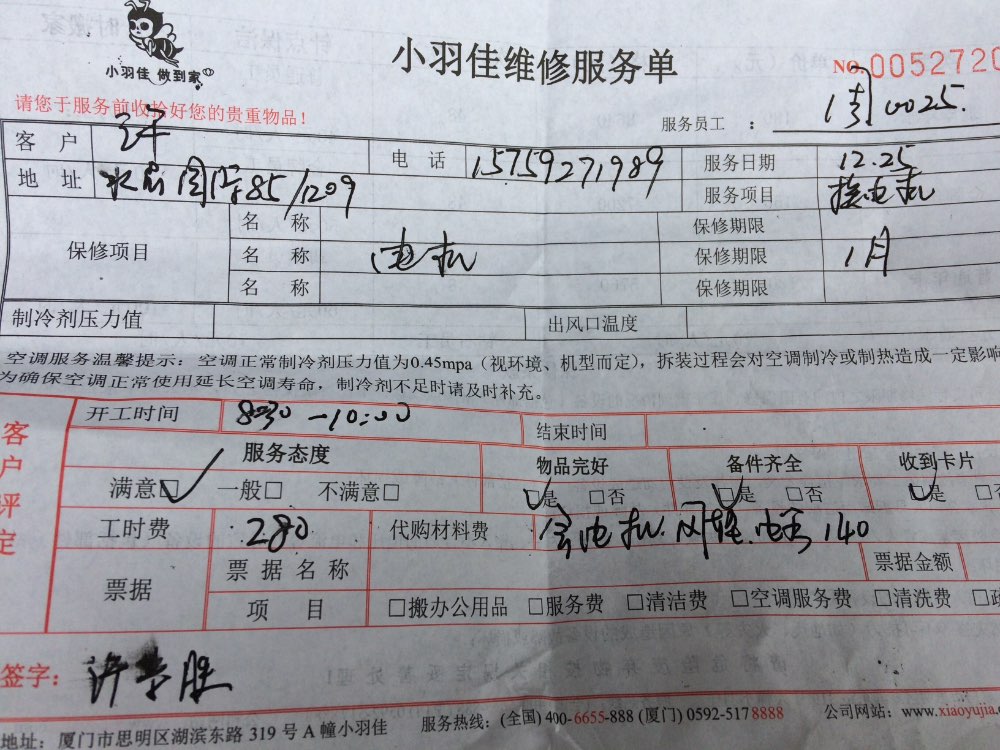 小羽佳 做到家
小羽佳维修服务单
NO.0052720
请您于服务前收拾好您的贵重物品！
服务员工 ： 0025.
客 户 许 电 话 15759271989 服务日期 12.25
地 址 85/1209 服务项目 换电机
保修项目
名 称 保修期限
名 称 电机 保修期限 1月
名 称 保修期限
制冷剂压力值 出风口温度
空调服务温馨提示：空调正常制冷剂压力值为0.45mpa（视环境、机型而定），拆装过程会对空调制冷或制热造成一定影响
为确保空调正常使用延长空调寿命，制冷剂不足时请及时补充。
客户评定
开工时间 8:30—10:00 结束时间
服务态度 物品完好 备件齐全 收到卡片
满意□ 一般□ 不满意□ □是 □否 □是 □否 □是 □否
工时费 280 代购材料费 含电机.风轮.电容140
票据 票据名称 票据金额
项 目 □搬办公用品 □服务费 □清洁费 □空调服务费 □清洗费
签字：许 胜
地址：厦门市思明区湖滨东路 319 号 A 幢小羽佳 服务热线：(全国) 400-6655-888 (厦门) 0592-5178888 公司网站：www.xiaoyujia